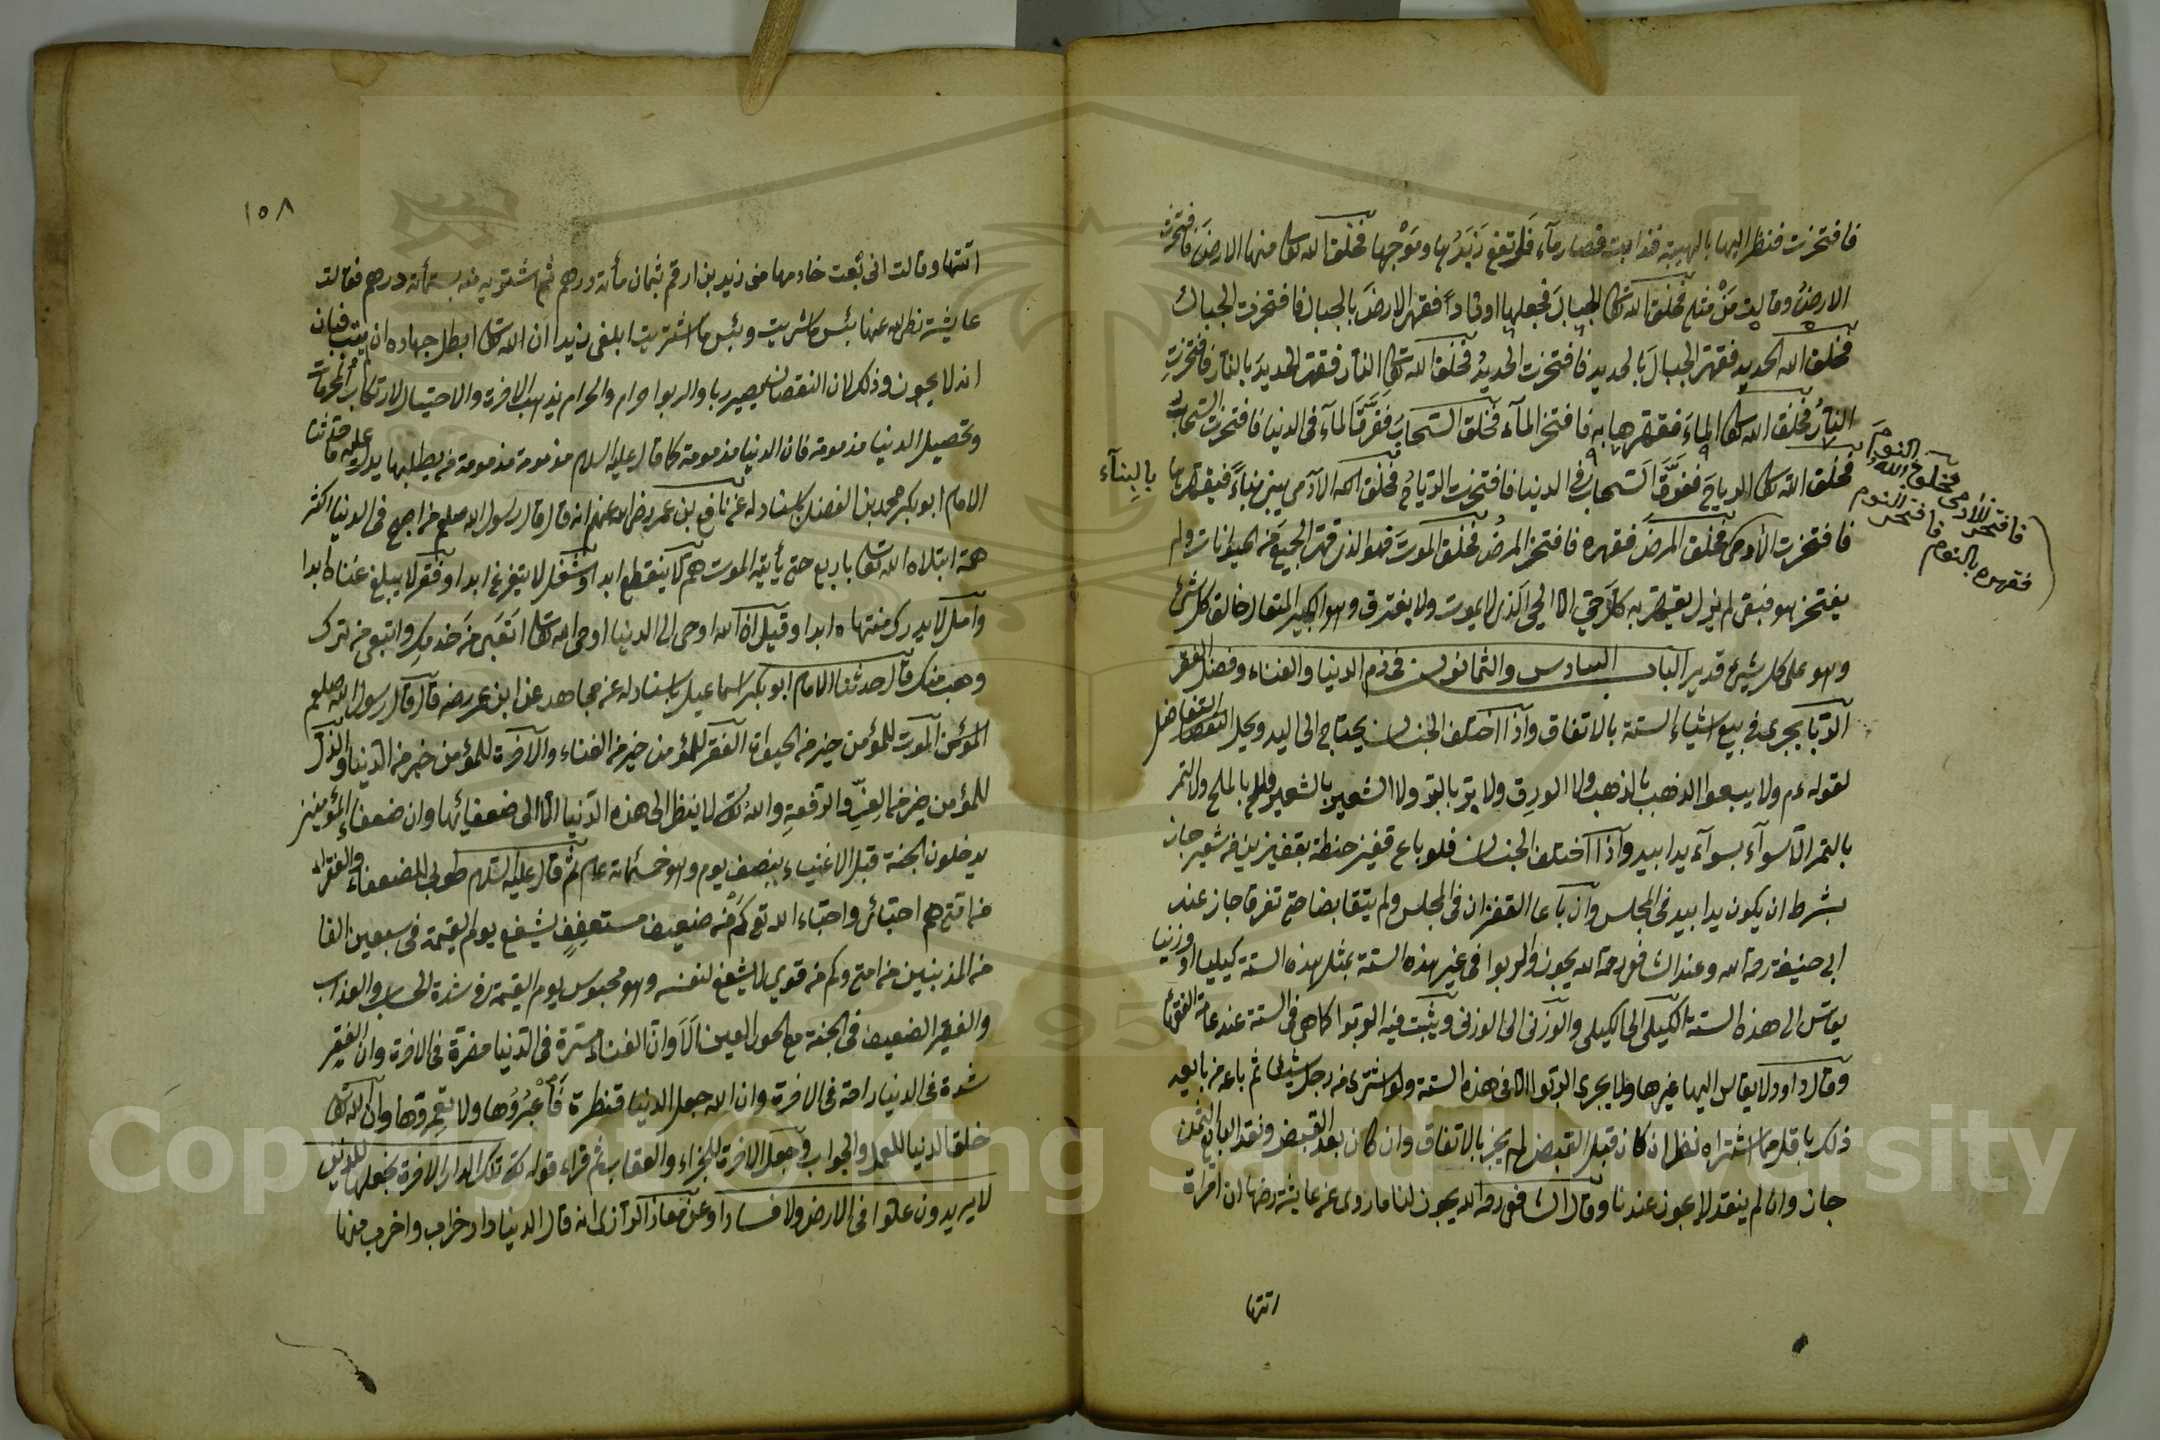 فافتخرت فنظر اليها بالهيبة فذابت فصار ماء فارتفع زبدها وموجها فخلق الله تعالى منها الارض فافتخرت
الارض وقالت من مثلي فخلق الله تعالى الجبال فجعلها اوتاداً فقهر الارض بالجبال فافتخرت الجبال
فخلق الله الحديد فقهر الجبال بالحديد فافتخرت الحديد فخلق الله تعالى النار فقهر الحديد بالنار فافتخرت
النار فخلق الله تعالى الماء فقهرها به فافتخر الماء فخلق السحاب ففرق الماء في الدنيا فافتخرت السحاب
فخلق الله تعالى الرياح ففرق السحاب في الدنيا فافتخرت الرياح فخلق الله الآدمي يبنى بناءً فيقهرها
بالبناء
فافتخر الآدمي فخلق الله النوم
فقهره بالنوم فافتخر النوم
فافتخرت الآدمي فخلق المرض فقهره فافتخر المرض فخلق الموت فهو الذى قهر الجميع من الحيوانات ولم
يفتخر هو فبقى لم يزل يقهر به كل حي الا الحي الذى لا يموت ولا يفترق وهو الكبير المتعال خالق كل شئ
وهو على كل شئ قدير الباب السادس والثمانون في ذم الدنيا والغناء وفضل الفقر
الربا يجرى في بيع اشياء الستة بالاتفاق واذا اختلف الجنسان يحتاج الى اليد ويحل التفاضل
لقوله عم ولا يبيعوا الذهب بالذهب ولا الورق ولا بر بالبر ولا الشعير بالشعير والملح بالملح ولا التمر
بالتمر الا سواء بسواء يدا بيد واذا اختلف الجنسان فلو باع قفيز حنطة بقفيزين من شعير جاز
بشرط ان يكون يدا بيد في المجلس وان باعا القفزان في المجلس ولم يتقابضا حتى تفرقا جاز عند
ابي حنيفة رحمه الله وعند الشافعي رحمه الله يجوز والربوا في غير هذه الستة بمثل هذه الستة كيليا او وزنيا
يقاس الى هذه الستة الكيلى الى الكيلى والوزنى الى الوزنى ويثبت فيه الربوا كما هي في الستة عند عامة الفقهاء
وقال داود لا يقاس اليها غيرها ولا يجرى الربوا الا في هذه الستة ولو اشترى من رجل شيئا ثم باعه من بايعه
ذلك باقل مما اشتراه نظر ان كان قبل القبض لم يجز بالاتفاق وان كان بعد القبض ونقد البايع الثمن
جاز وان لم ينقد لا يجوز عندنا وقال الشافعي رحمه الله يجوز لنا ما روى عن عايشة رضها ان امراة
اتتها
١٥٨
اتتها وقالت انى بعت خادمها من زيد بن ارقم بثمان مأته درهم ثم اشتريه منه بستمأته درهم فقالت
عايشة رضى الله عنها بئس ما شريت وبئس ما اشتريت ابلغى زيدا ان الله تعالى ابطل جهاده ان لم يتب فبان
انه لا يجوز وذلك لان النقصان يصير ربا والربوا حرام والحرام يذهب الآخرة والاحتيال لارتكاب المحرمات
وتحصيل الدنيا مذمومة فان الدنيا مذمومة كما قال عليه السلام مذمومة مذمومة من يطلبها يدل عليه ما حدثنا
الامام ابو بكر محمد بن الفضل باسناد له عن نافع بن عمر رضى الله عنهم انه قال قال رسول الله صلعم من اصبح في الدنيا اكثر
همه ابتلاه الله تعالى باربع حتى يأتيه الموت هم لا ينقطع ابدا وشغل لا يتفرغ ابدا وفقر لا يبلغ غناه ابدا
وامل لا يدرك منتهاه ابدا وقيل ان الله اوحى الى الدنيا اوحى الله تعالى اتعبى من خدمك واتبعى من ترك
وهب منك قال حدثنا الامام ابو بكر اسماعيل باسناد له عن مجاهد عن ابن عمر رضه قال قال رسول الله صلعم
الموت للمؤمن خير من الحيوة الفقر للمؤمن خير من الغناء والآخرة للمؤمن خير من الدنيا والذل
للمؤمن خير من العز والرفعة والله تعالى لا ينظر الى هذه الدنيا الا الى ضعفائها وان ضعفاء المؤمنين
يدخلون الجنة قبل الاغنياء بنصف يوم وهو خمسمائة عام ثم قال عليه السلام طوبى للضعفاء والفقراء
من امتى هم احبائى واحباء الله تع كم من ضعيف مستعفف يشفع يوم القيمة في سبعين الفا
من المذنبين من امتى وكم من قوي لا يشفع لنفسه وهو محبوس يوم القيمة في شدة الحساب والعذاب
والفقير الضعيف في الجنة مع الحور العين الا وان الغناء مسرة في الدنيا مضرة في الاخرة وان الفقير
شدة في الدنيا راحة في الاخرة وان الله جعل الدنيا قنطرة فاعبروها ولا تعمروها وان الله تعالى
خلق الدنيا للعمل والجواب وجعل الاخرة للجزاء والعقاب ثم قراء قوله تع تلك الدار الاخرة نجعلها للذين
لا يريدون علوا في الارض ولا فسادا وعن معاذ الرازى انه قال الدنيا دار خراب واخرب منها
Copyright © King Saud University